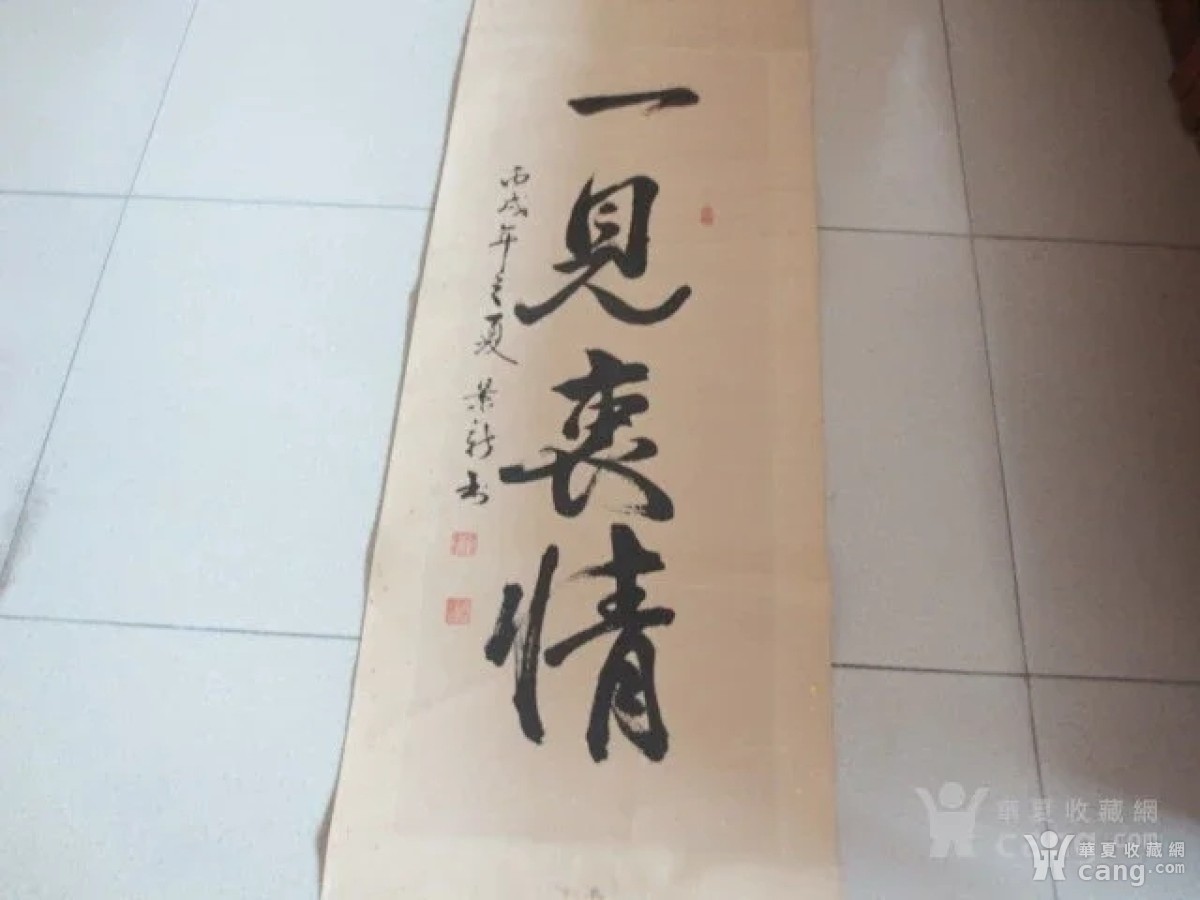 一見衷情
丙戌年之夏 新书
華夏收藏網
cang.com
華夏收藏網
cang.com